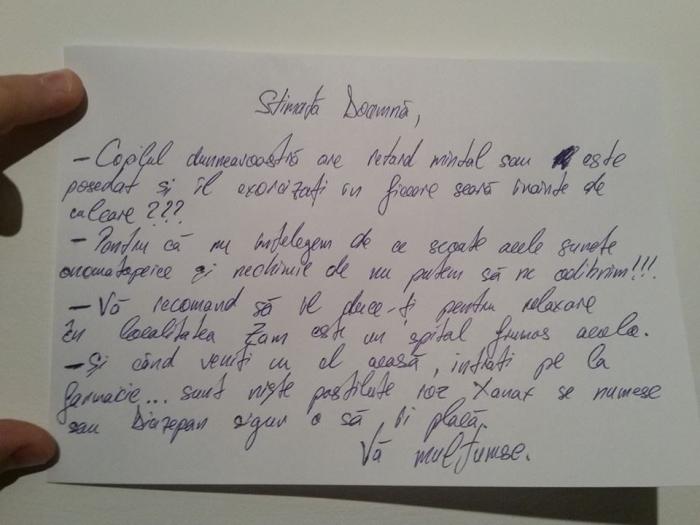 Stimată Doamnă,
– Copilul dumneavoastră are retard mintal sau este
posedat și îl exorcizați în fiecare seară înainte de
culcare ???
– Pentru că nu înțelegem de ce scoate acele sunete
onomatopeice și nechimie de nu putem să ne odihnim!!!.
– Vă recomand să îl duce-ți pentru relaxare
în localitatea Zam este un spital frumos acolo.
– Și când veniți cu el acasă, intrați pe la
farmacie... sunt niște pastiluțe roz Xanax se numesc
sau Diazepan sigur o să îi placă.
Vă mulțumesc.